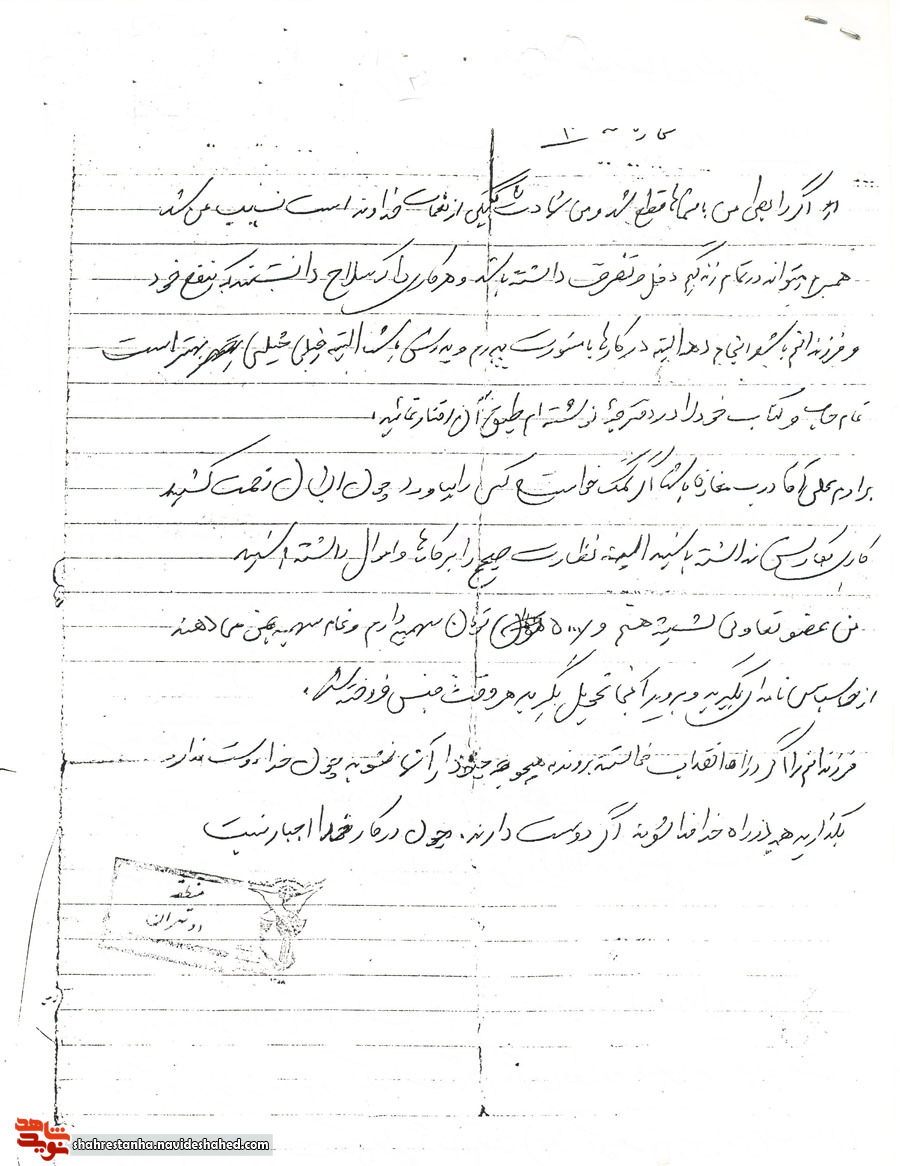 اگر رابطه من با شماها قطع شد و من شهادت که یکی از نعمات خداوند است نسیب من شد
همسرم میتواند در تمام زندگیم دخل و تصرف داشته باشد و هر کاری را که سلاح دانستند که بنفع خود
و فرزندانم باشد انجام دهد البته در کارها با مشورت پدرم و پدرش باشد البته خیلی خیلی بهتر است
تمام حساب و کتاب خود را در دفترچه نوشته ام طبق آن رفتار نمائید.
برادرم علی آقا درب مغازه باشد اگر کمک خواست کسی را بیاورد چون ایشان زحمت کشید
کاری بکارش نداشته باشید البته نظارت صحیح را بر کارها و اموال داشته باشید
من عضو تعاونی هستم و تومان سهمیه دارم و تمام سهمیه بمن می دهند
نامه ای بگیرید و بروید آنجا تحویل بگیرید هر وقت جنس فروخته شد.
فرزندانم را اگر در راه انقلاب خواستند بروند به هیچ وجه جلودار آنها نشوید چون خدا دوست ندارد
بگذارید در راه خدا فدا شوند اگر دوست دارند. چون در کار خدا اجبار نیست
منطقه
تهران
نوید شاهد
shahrestanha.navideshahed.com